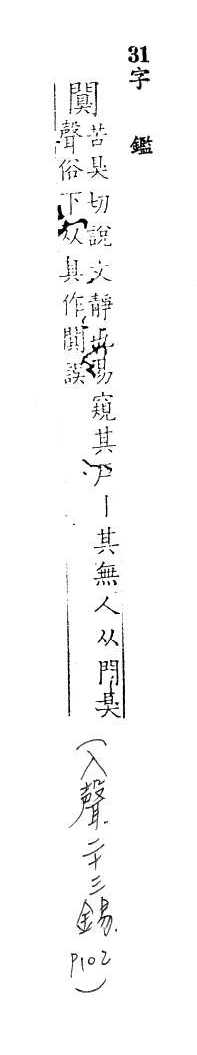 31 字鑑
闃 苦狊切說文靜也易窺其戶丨其無人从門狊
聲俗下从具作闃誤
(入聲二十三錫 P102)